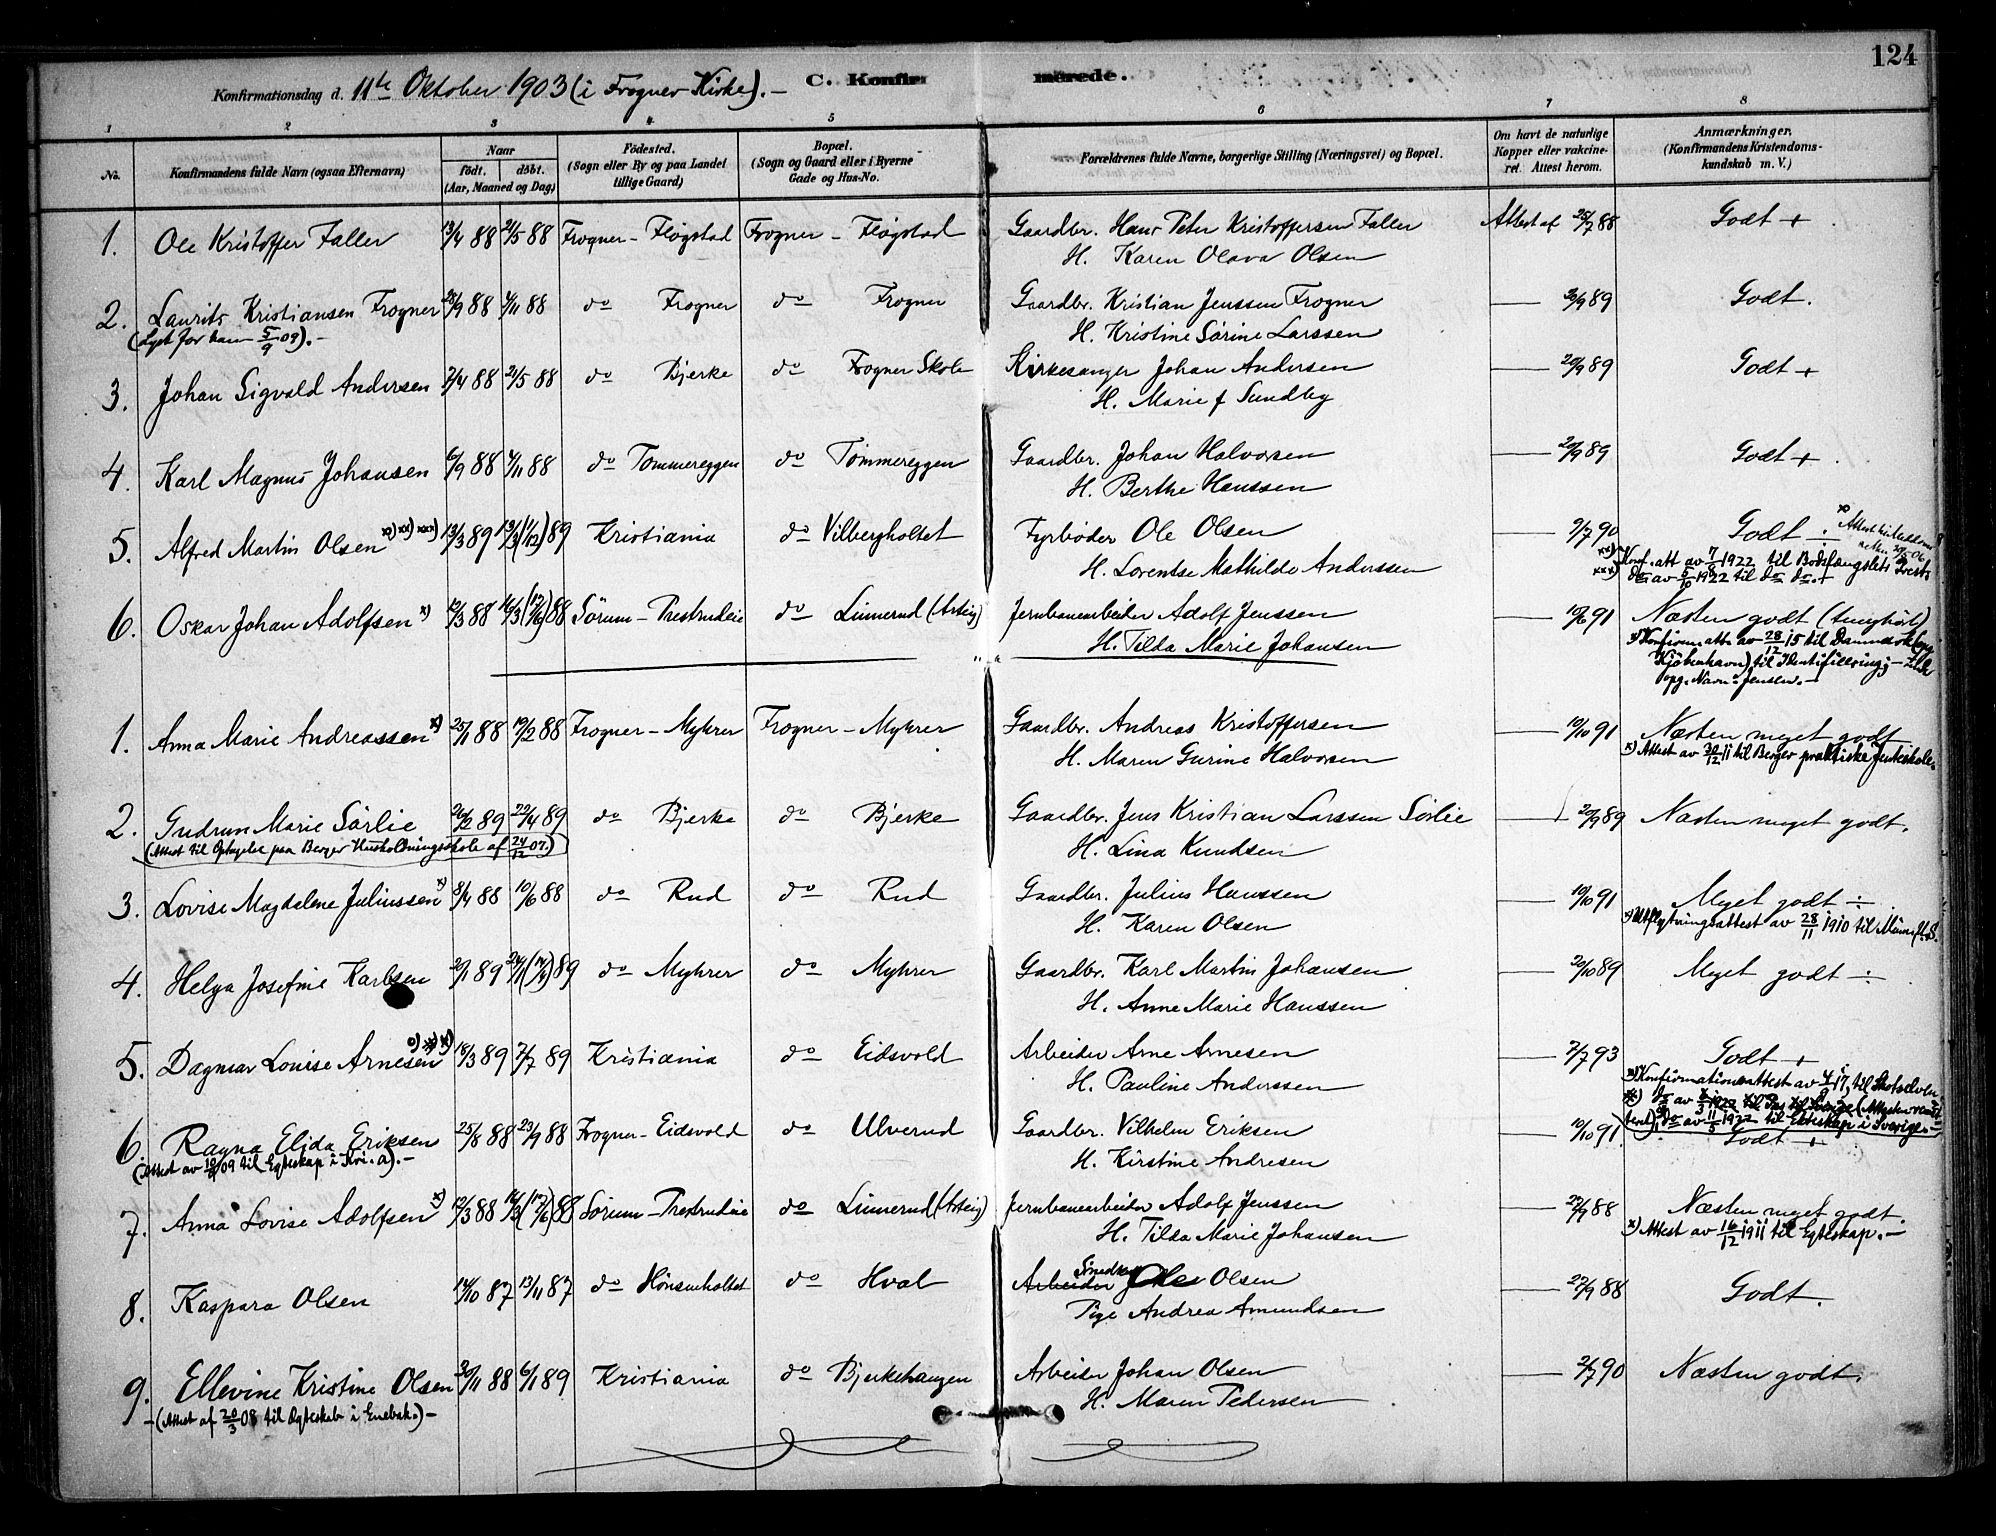 124
Konfirmationsdag d. 11te Oktober 1903 (i Frogner Kirke). — C. Konfirmerede.
1 2 3 4 5 6 7 8
No. Konfirmandens fulde Navn (ogsaa Efternavn) Naar født. døbt. (Aar, Maaned og Dag) Fødested. (Sogn eller By og paa Landet tillige Gaard) Bopæl. (Sogn og Gaard eller i Byerne Gade og Hus-No. Forældrenes fulde Navne, borgerlige Stilling (Næringsvei) og Bopæl. Om havt de naturlige Kopper eller vakcineret. Attest herom. Anmærkninger. (Konfirmandens Kristendomskundskab m. V.)
1. Ole Kristoffer Faller 13/4 88 21/5 88 Frogner – Fløgstad Frogner – Fløgstad Gaardbr. Hans Peter Kristoffersen Faller Attest af 25/7 88 Godt +
H. Karen Olava Olsen
2. Laurits Kristiansen Frogner 28/9 88 4/11 88 do Frogner do Frogner Gaardbr. Kristian Jenssen Frogner — 30/9 89 Godt.
(Lyst for ham 5/9 09). — H. Kristine Sørine Larssen
3. Johan Sigvald Andersen 7/4 88 21/5 88 do Bjerke do Frogner Skole Kirkesanger Johan Andersen — 20/9 89 Godt +
H. Marie f Sundby
4. Karl Magnus Johansen 6/9 88 4/11 88 do Tømmereggen do Tømmereggen Gaardbr. Johan Halvorsen — 20/9 89 Godt +
H. Berthe Hanssen
5. Alfred Martin Olsen x) xx) xxx) 13/3 89 19/3 (1/12) 89 Kristiania do Vilbergholtet Fyrbøder Ole Olsen — 9/7 90 Godt ÷
H. Lorentse Mathilde Anderssen xx) Konf. att av 7/8 1922 til Bodsfængslets Prest
xxx) do av 5/10 1922 til do do. —
6. Oskar Johan Adolfsen x) 12/3 88 16/3 (17/6) 88 Sørum – Prestrudeie do Linnerud (Asteig) Jernbanearbeider Adolf Jenssen — 10/6 91 Næsten godt (tunghørt)
H. Tilda Marie Johansen x) Konfirm. att. av 28/12 15 til Danmark (
Kjøbenhavn) til Identificering; —
opg. Navn: Jensen. —
1. Anna Marie Andreassen x) 25/1 88 19/2 88 Frogner – Myhrer Frogner – Myhrer Gaardbr. Andreas Kristoffersen — 10/10 91 Næsten meget godt
H. Maren Gurine Halvorsen x) Attest av 30/12 11 til Berger praktiske Jenteskole.
2. Gudrun Marie Sørlie 26/2 89 22/4 89 do Bjerke do Bjerke Gaardbr. Jens Kristian Larssen Sørlie — 20/9 89 Næsten meget godt.
(Attest til Optagelse paa Berger Husholdningsskole af 24/12 07.) H. Lina Knudsen
3. Lovise Magdalene Juliussen x) 8/4 88 10/6 88 do Rud do Rud Gaardbr. Julius Hanssen — 10/10 91 Meget godt ÷
H. Karen Olsen x) Utflytningsattest av 28/11 1910 til
4. Helga Josefine Karlsen 2/1 89 24/1 (14/4) 89 do Myhrer do Myhrer Gaardbr. Karl Martin Johansen — 20/10 89 Meget godt ÷
H. Anne Marie Hanssen
5. Dagmar Louise Arnesen 18/3 89 7/7 89 Kristiania do Eidsvold Arbeider Arne Arnesen — 7/7 93 Godt +
H. Pauline Anderssen x) Konfirmationsattest av 4/1 17, til Skotselven
do av 11/5 1922 til Ekteskap i Sverige. —
6. Ragna Elida Eriksen 25/8 88 23/9 88 Frogner – Eidsvold do Ulverud Gaardbr. Vilhelm Eriksen — 10/10 91 Godt +
(Attest av 09 til Egteskap i Kri.a). — H. Kirstine Andresen
7. Anna Lovise Adolfsen x) 12/3 88 16/3 (17/6) 88 Sørum – Prestrudeie do Linnerud (Asteig) Jernbanearbeider Adolf Jenssen — 22/9 88 Næsten meget godt.
H. Tilda Marie Johansen x) Attest av 16/12 1911 til Egteskap. —
8. Kaspara Olsen 14/10 87 13/11 87 do Hønsenholtet do Hval Arbeider Smedsv Ole Olsen — 22/9 88 Godt.
Pige Andrea Amundsen
9. Ellevine Kristine Olsen 30/11 88 6/1 89 Kristiania do Bjerkehaugen Arbeider Johan Olsen — 2/7 90 Næsten godt.
— (Attest af 20/3 08 til Ægteskab i Enebak.) — H. Maren Pedersen